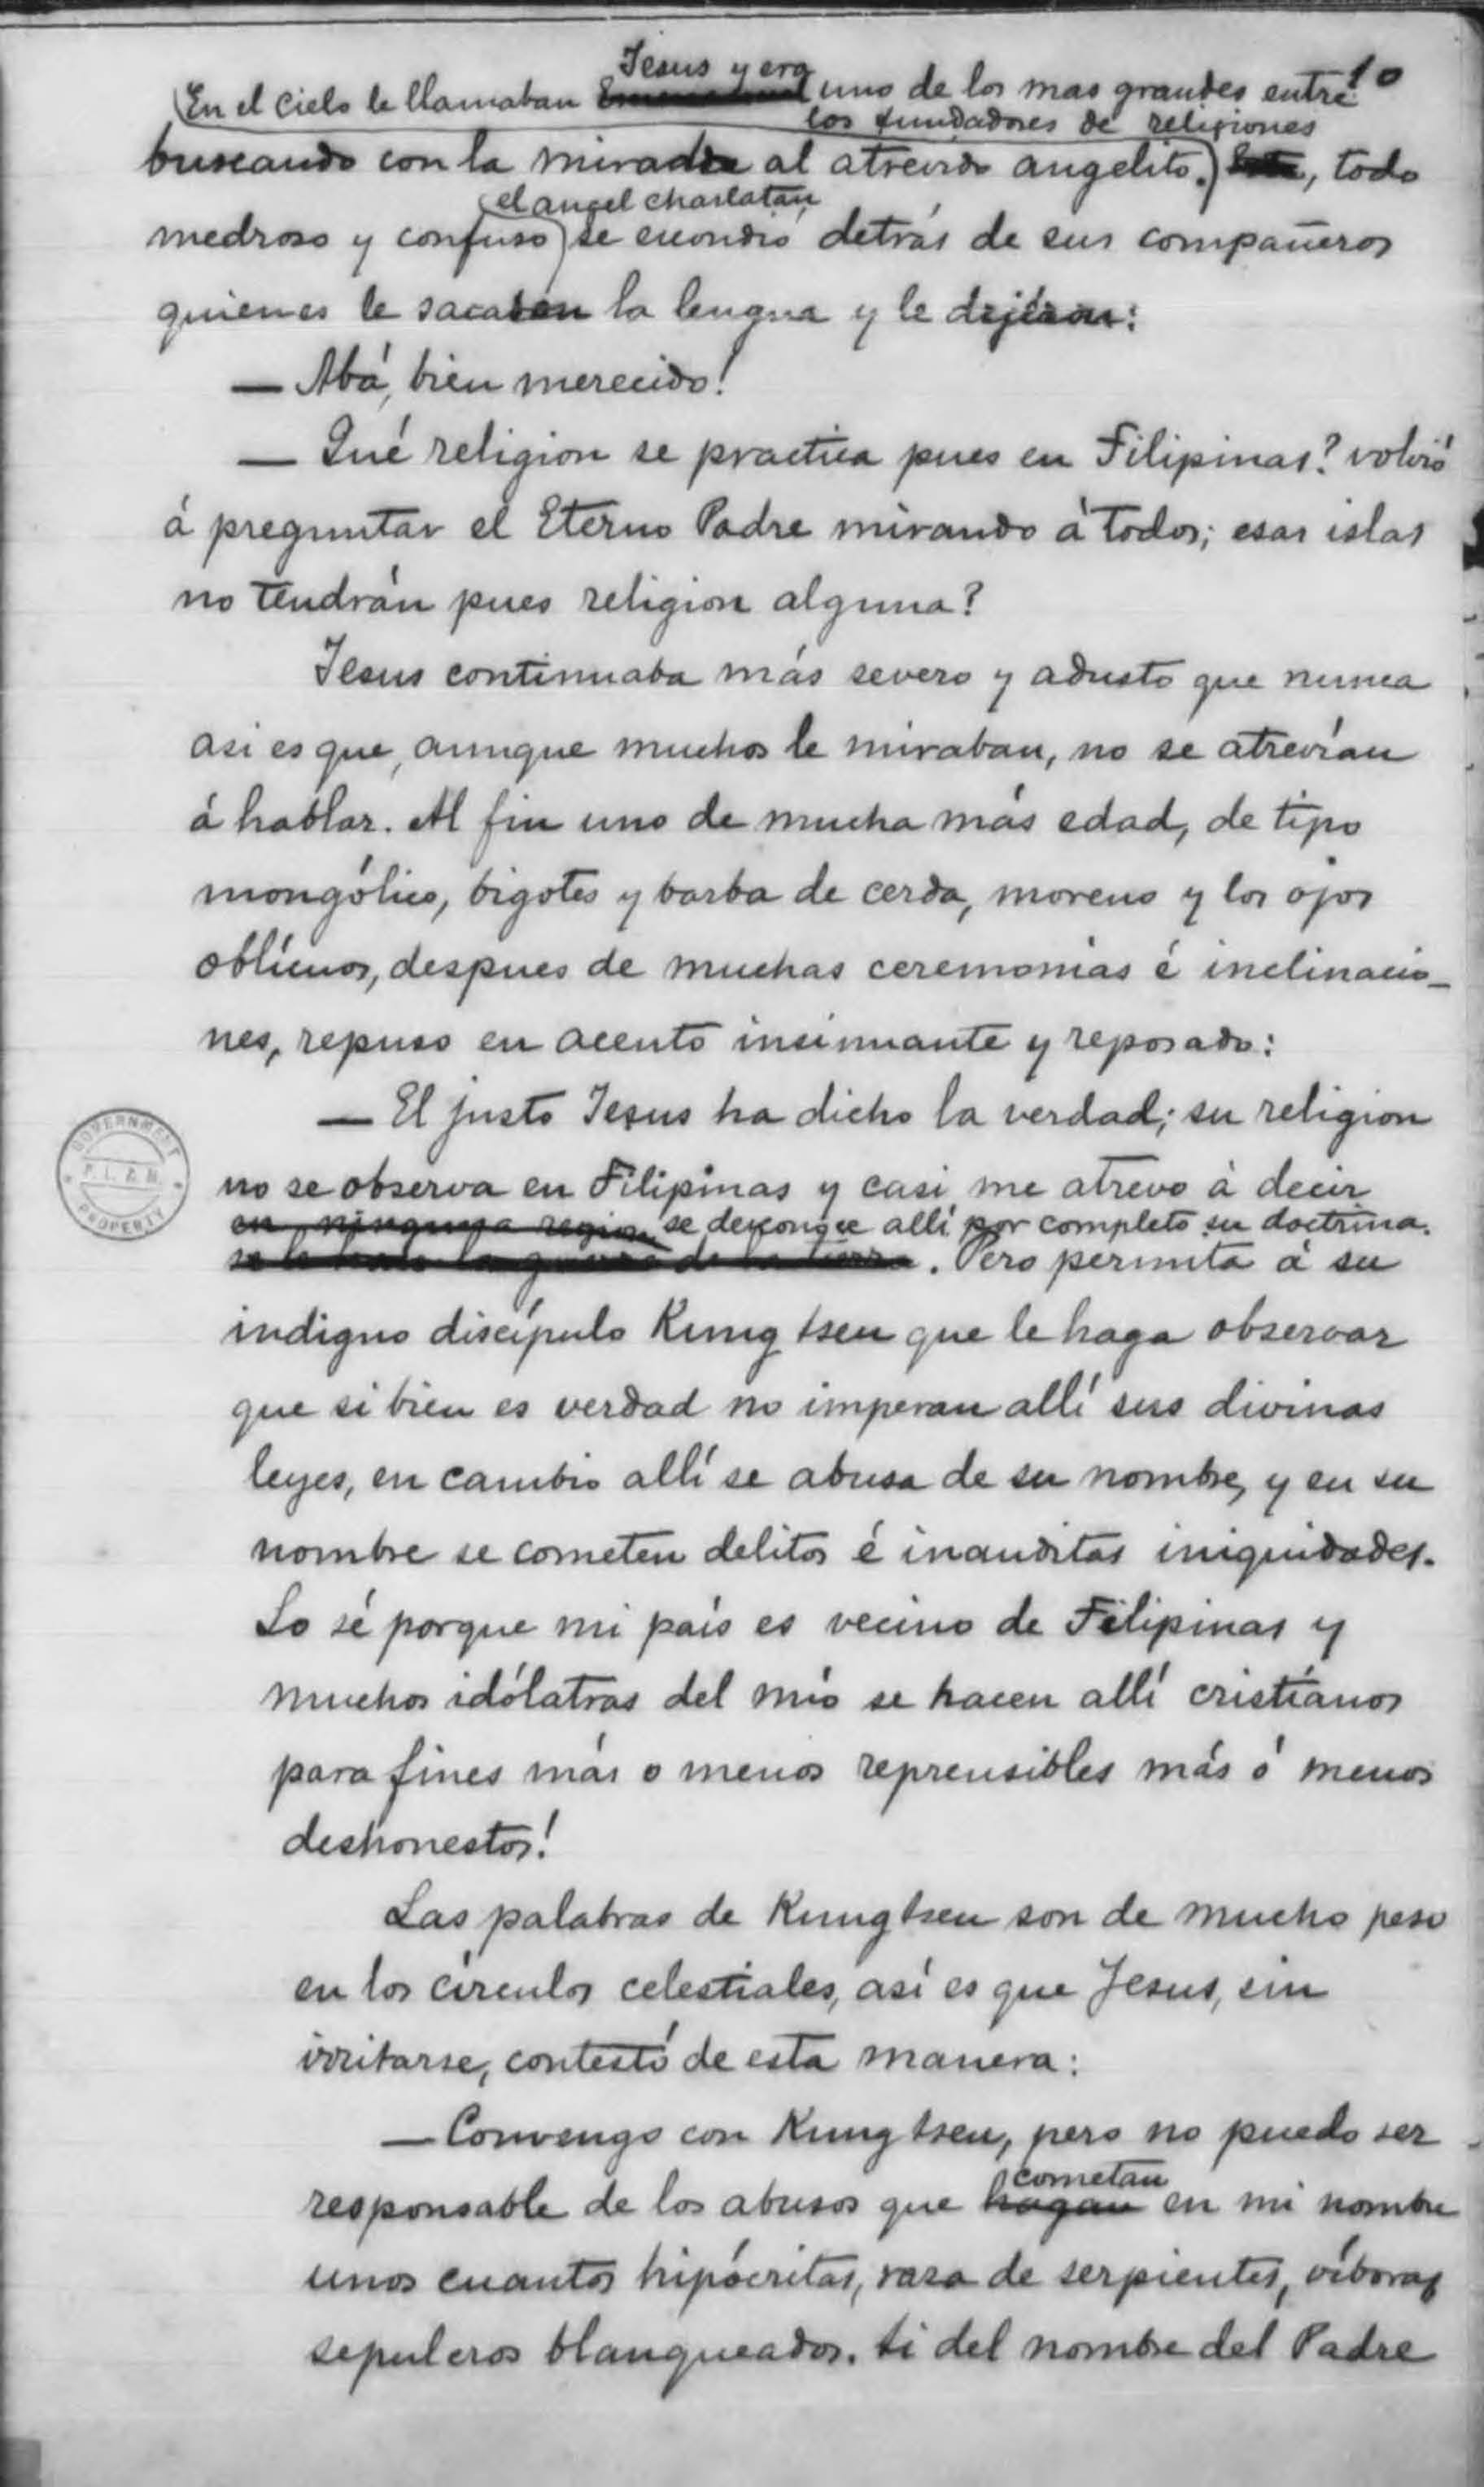 10
Jesus y era
En el cielo le llamaban uno de los mas grandes entre
los fundadores de religiones
buscando con la mirada al atrevido angelito. Este, todo
el angel charlatan
medroso y confuso se escondió detrás de sus compañeros
quienes le sacaban la lengua y le dijeron:
— Abá, bien merecido!
— Qué religion se practica pues en Filipinas? volvió
á preguntar el Eterno Padre mirando á todos; esas islas
no tendrán pues religion alguna?
Jesus continuaba más severo y adusto que nunca
asi es que, aunque muchos le miraban, no se atrevían
á hablar. Al fin uno de mucha más edad, de tipo
mongólico, bigotes y barba de cerda, moreno y los ojos
oblícuos, despues de muchas ceremonias é inclinacio-
nes, repuso en acento insinuante y reposado:
— El justo Jesus ha dicho la verdad; su religion
no se observa en Filipinas y casi me atrevo á decir
en ninguna region se desconoce allí por completo su doctrina.
se le hace la guerra de la tierra. Pero permita á su
indigno discípulo Kung tseu que le haga observar
que si bien es verdad no imperan allí sus divinas
leyes, en cambio allí se abusa de su nombre, y en su
nombre se cometen delitos é inauditas iniquidades.
Lo sé porque mi país es vecino de Filipinas y
muchos idólatras del mío se hacen allí cristianos
para fines más o menos reprensibles más ó menos
deshonestos!
Las palabras de Kung tseu son de mucho peso
en los círculos celestiales, así es que Jesus, sin
irritarse, contestó de esta manera:
— Convengo con Kung tseu, pero no puedo ser
cometan
responsable de los abusos que hagan en mi nombre
unos cuantos hipócritas, raza de serpientes, víboras
sepulcros blanqueados. Si del nombre del Padre
GOVERNMENT
P.L.&M.
PROPERTY